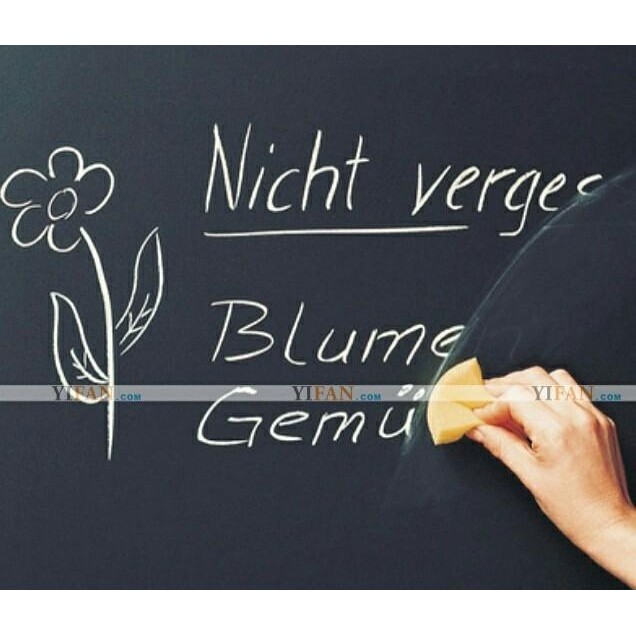 Nicht verges
Blume
YIFAN.COM YIFAN.COM YIFAN.COM
Gemü